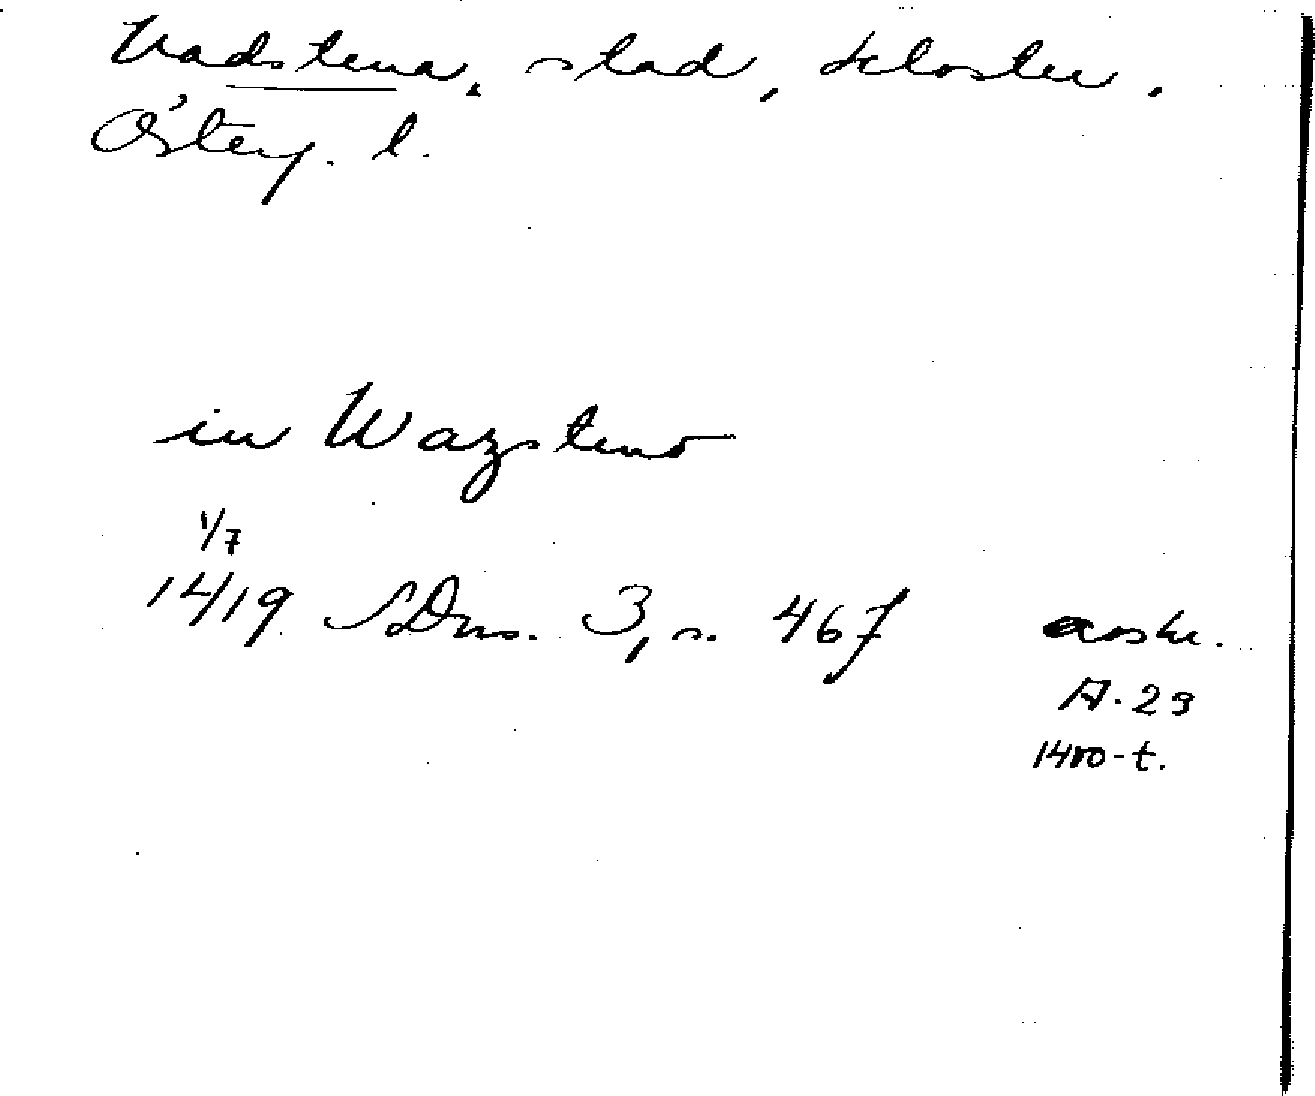 Vadstena, stad, kloster,
Österg. l.
in Wazsteno
1/7
1419 SDns. 3, s. 467 avskr.
A. 29
1400-t.